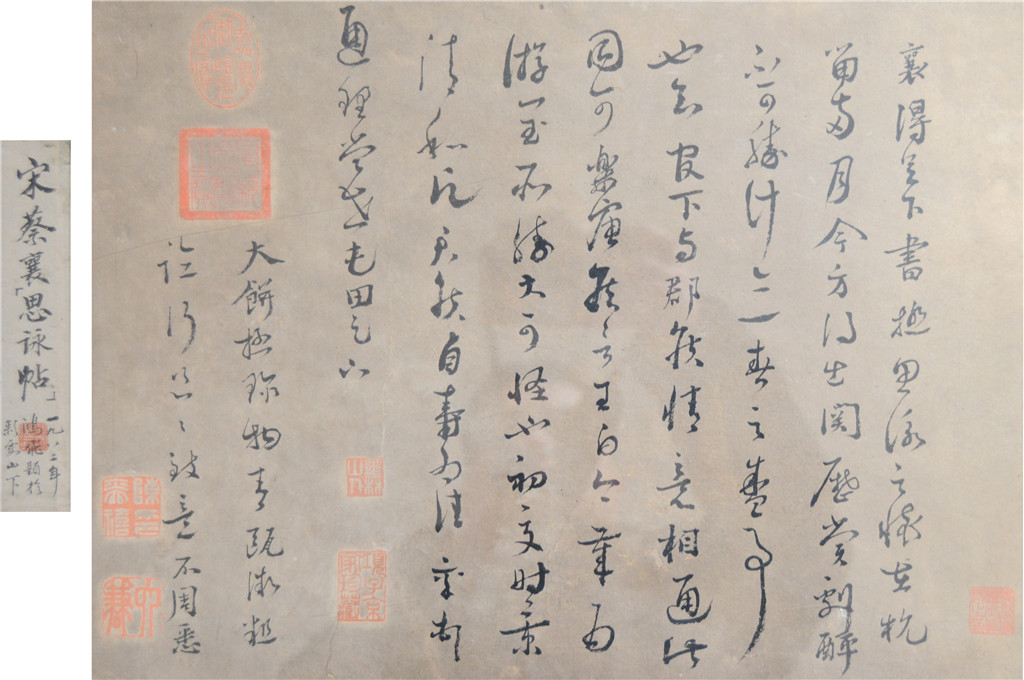 襄得足下書極思詠之懷在杭
留兩月今方得出関歷賞劇醉
不可勝計亦一春之盛事
也知官下与郡侯情意相通此
固可樂唐侯言王白今歲为
游閏所勝大可怪也初夏时景
清和願君侯自壽为佳襄頓
通理當世屯田足下
大餅極珍物青甌微麄
臨行匆匆致意不周悉
項子京家珍藏
宋蔡襄「思詠帖」
一九八三年
鴻飛題於
山下